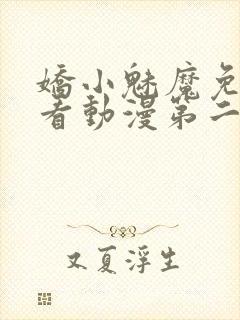 嬌小魅魔免
看動漫第二
又夏浮生